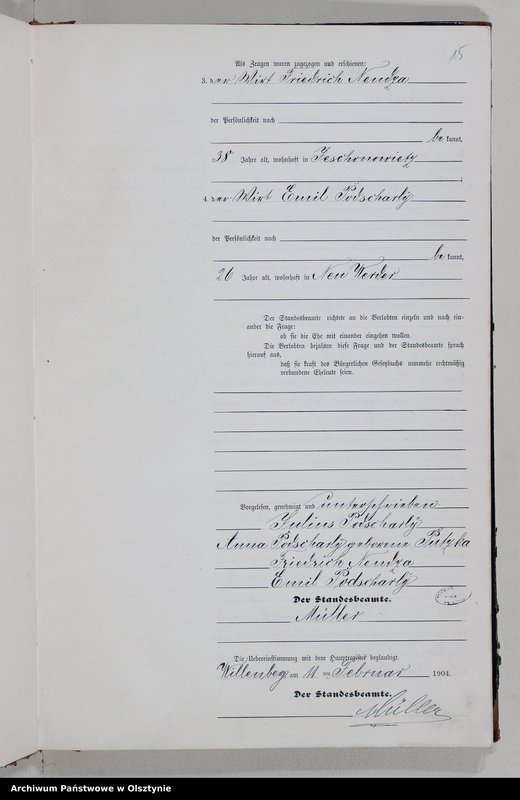 15
Als Zeugen waren zugezogen und erschienen:
3. der Wirt Friedrich Nendza
der Persönlichkeit nach
be kannt,
38 Jahre alt, wohnhaft in Jeschonowietz
;
4. der Wirt Emil Podscharly
der Persönlichkeit nach
be kannt,
26 Jahre alt, wohnhaft in Neu Werder
Der Standesbeamte richtete an die Verlobten einzeln und nach ein-
ander die Frage:
ob sie die Ehe mit einander eingehen wollen.
Die Verlobten bejahten diese Frage und der Standesbeamte sprach
hierauf aus,
daß sie kraft des Bürgerlichen Gesetzbuchs nunmehr rechtmäßig
verbundene Eheleute seien.
Vorgelesen, genehmigt und unterschrieben
Julius Podscharly
Anna Podscharly geborene Putzka
Friedrich Nendza
Emil Podscharly
Der Standesbeamte.
Müller
Die Uebereinstimmung mit dem Hauptregister beglaubigt.
Willenberg, am 11 ten Februar 1904.
Der Standesbeamte.
Müller
Archiwum Państwowe w Olsztynie